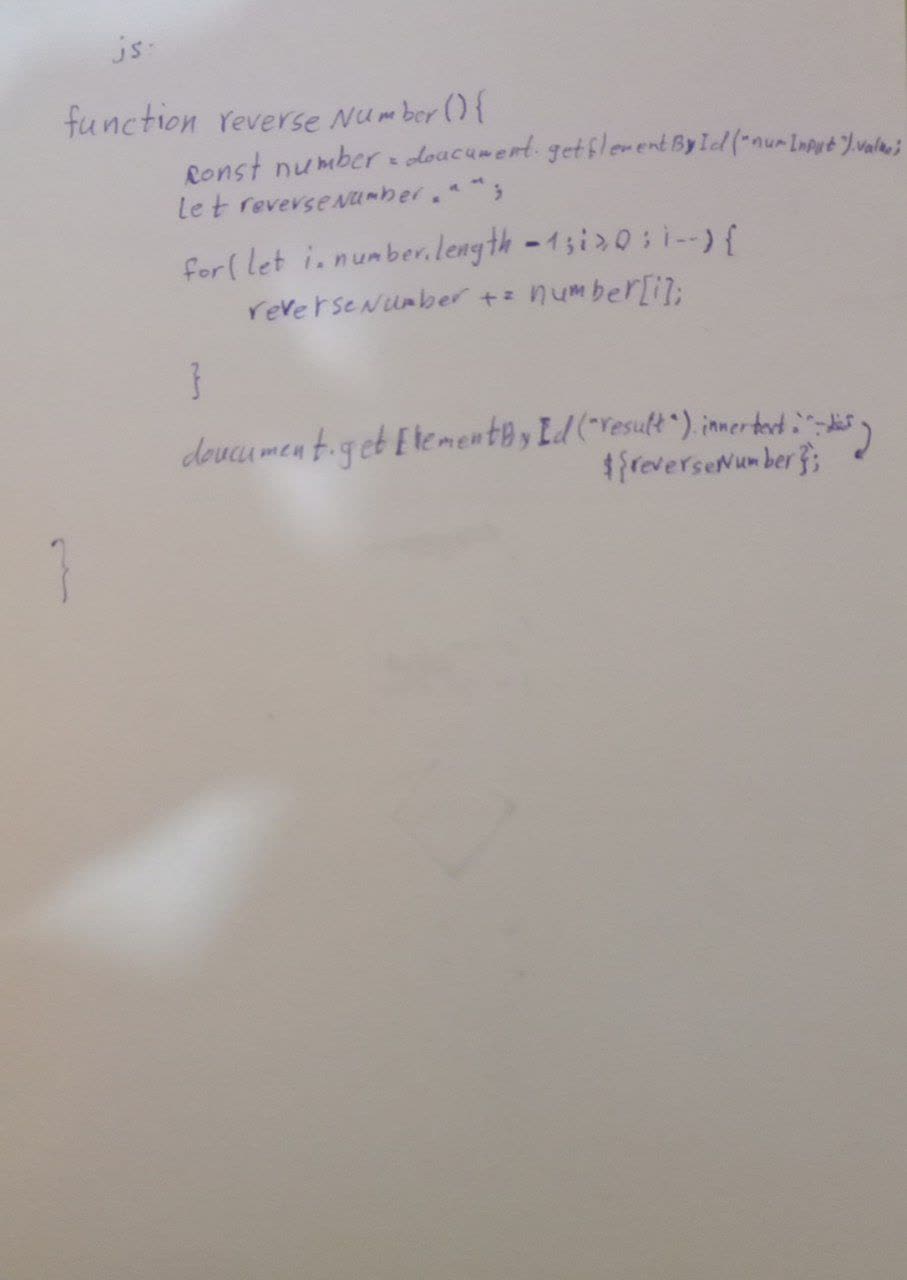 js.
function reverseNumber(){
const number = doucument.getElementById("numInput").value;
let reverseNumber = "";
for(let i = number.length -1; i>0; i--){
reverseNumber += number[i];
}
doucument.getElementById("result").innertext =
${reverseNumber}`;
}